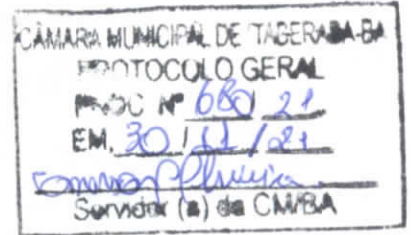 CÂMARA MUNICIPAL DE TAGERABA-BA
PROTOCOLO GERAL
PROC Nº 680 / 21
EM, 30 / 11 / 21
Servidor (a) da CM/BA